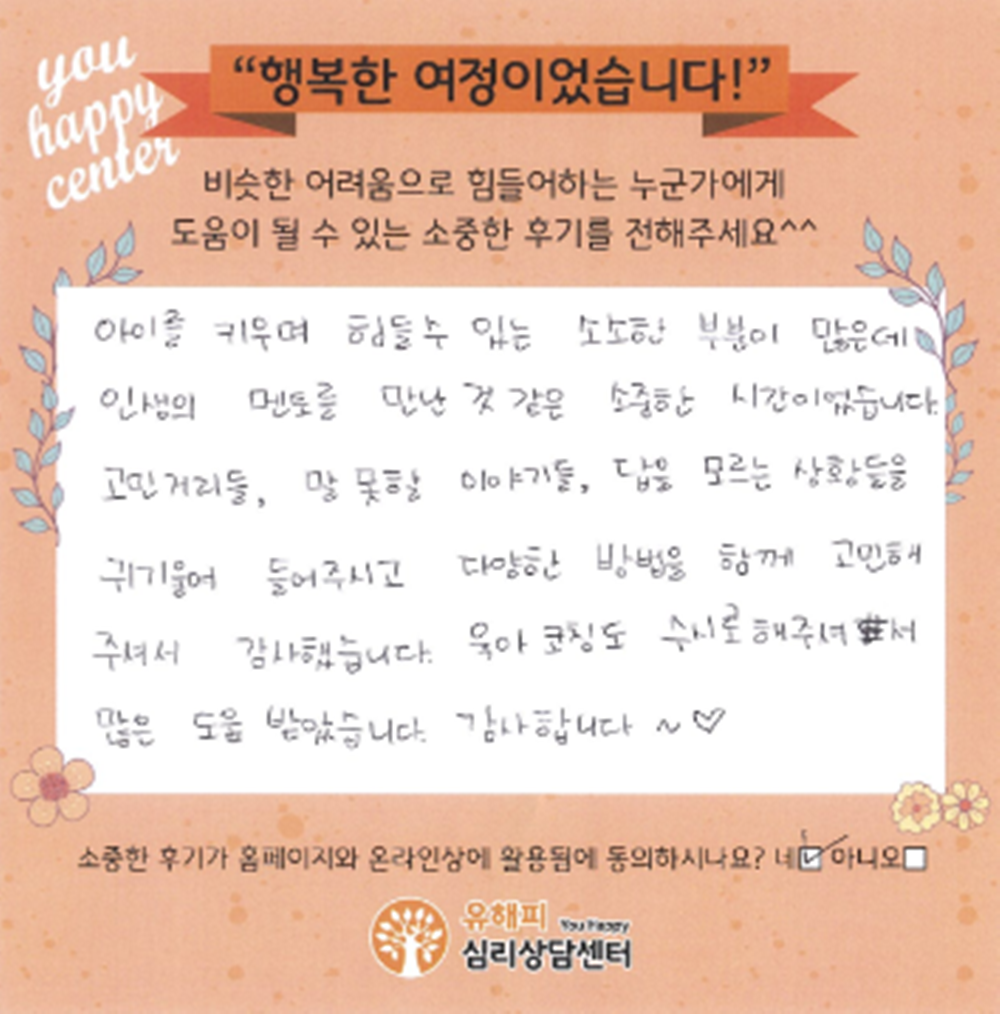 you
happy
center
“행복한 여정이었습니다!”
비슷한 어려움으로 힘들어하는 누군가에게
도움이 될 수 있는 소중한 후기를 전해주세요^^
아이를 키우며 힘들 수 있는 소소한 부분이 많은데
인생의 멘토를 만난 것 같은 소중한 시간이었습니다.
고민거리들, 말 못할 이야기들, 답을 모르는 상황들을
귀기울여 들어주시고 다양한 방법을 함께 고민해
주셔서 감사했습니다. 육아 코칭도 수시로 해주셔서
많은 도움 받았습니다. 감사합니다 ~♡
소중한 후기가 홈페이지와 온라인상에 활용됨에 동의하시나요? 네☑ 아니오□
유해피 You Happy
심리상담센터